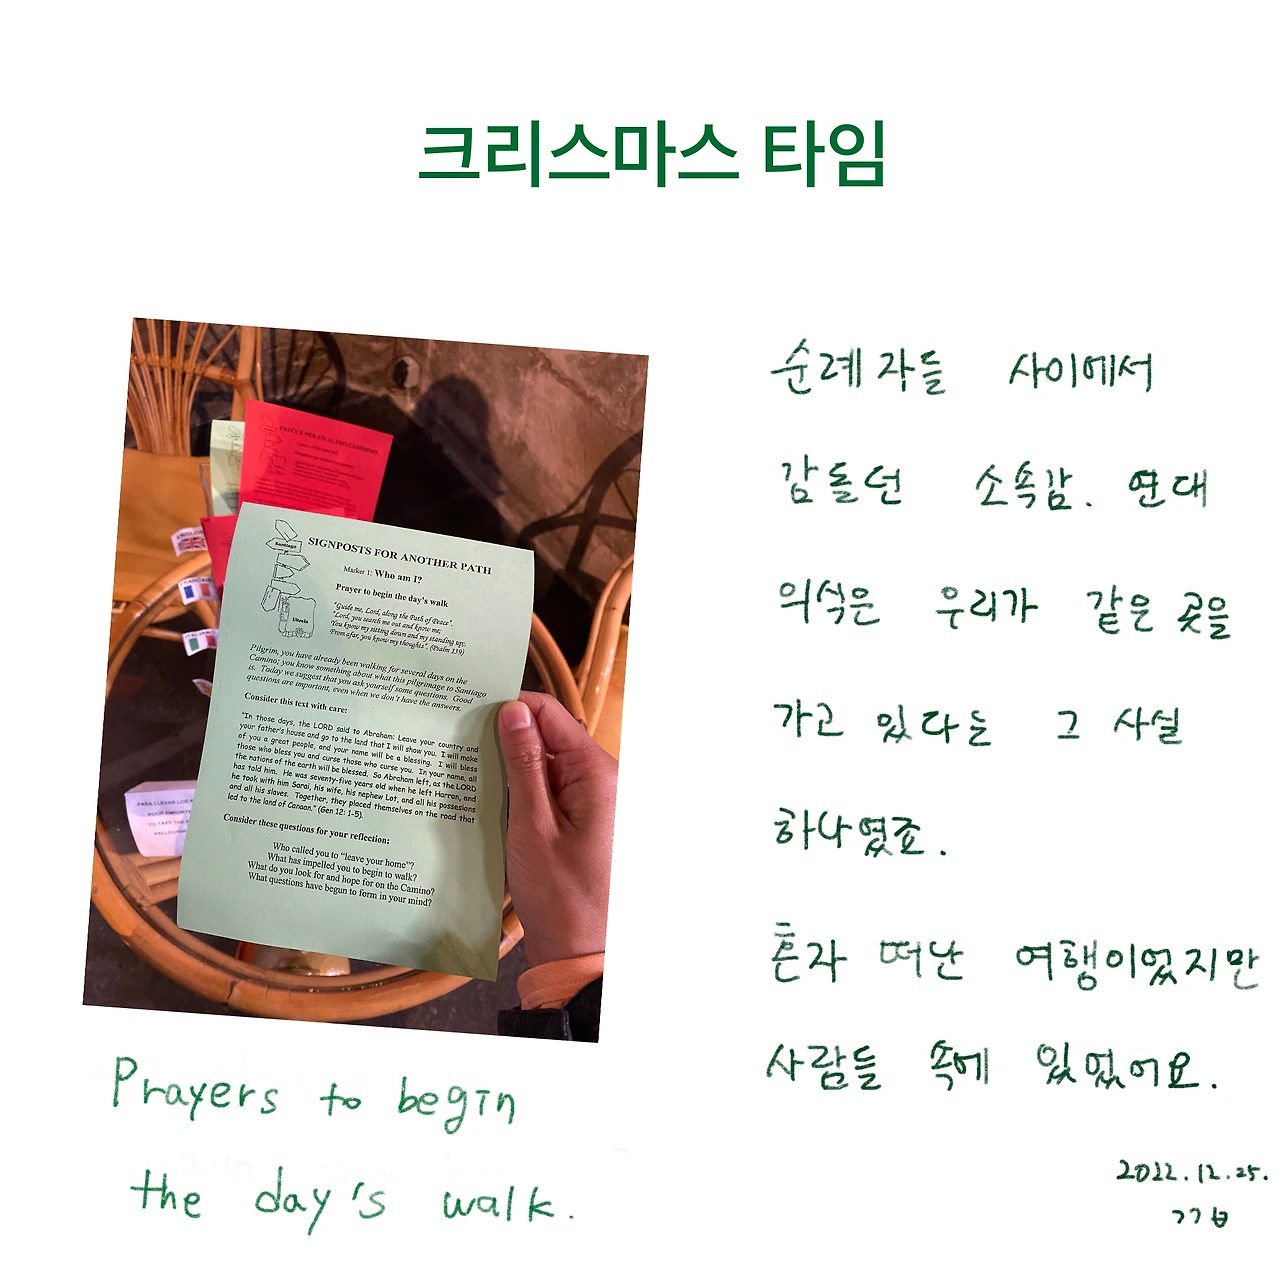 크리스마스 타임
PREGUE PER UN ALTRO CAMMINO
ENGLISH
FRANÇAIS
ITALIANO
Santiago
Ultreia
SIGNPOSTS FOR ANOTHER PATH
Marker 1: Who am I?
Prayer to begin the day's walk
"Guide me, Lord, along the Path of Peace".
"Lord, you search me out and know me;
You know my sitting down and my standing up;
From afar, you know my thoughts". (Psalm 139)
Pilgrim, you have already been walking for several days on the
Camino; you know something about what this pilgrimage to Santiago
is. Today we suggest that you ask yourself some questions. Good
questions are important, even when we don't have the answers.
Consider this text with care:
"In those days, the LORD said to Abraham: Leave your country and
your father's house and go to the land that I will show you. I will make
of you a great people, and your name will be a blessing. I will bless
those who bless you and curse those who curse you. In your name, all
the nations of the earth will be blessed. So Abraham left, as the LORD
has told him. He was seventy-five years old when he left Harran, and
he took with him Sarai, his wife, his nephew Lot, and all his possesions
and all his slaves. Together, they placed themselves on the road that
led to the land of Canaan." (Gen 12: 1-5).
Consider these questions for your reflection:
Who called you to "leave your home"?
What has impelled you to begin to walk?
What do you look for and hope for on the Camino?
What questions have begun to form in your mind?
PARA LLEVAR LOS
POUR EMPORTE
TO TAKE
Prayers to begin
the day's walk.
순례자들 사이에서
감돌던 소속감. 연대
의식은 우리가 같은 곳을
가고 있다는 그 사실
하나였죠.
혼자 떠난 여행이었지만
사람들 속에 있었어요.
2022.12.25.